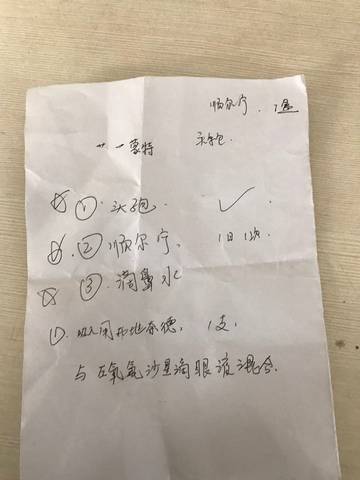 顺尔宁. 1盒
蒙特 头孢.
① 头孢. ✓
② 顺尔宁. 1日1次.
③ 滴鼻水
① 吸入用布地奈德, 1支,
与左氧氟沙星滴眼液混合.